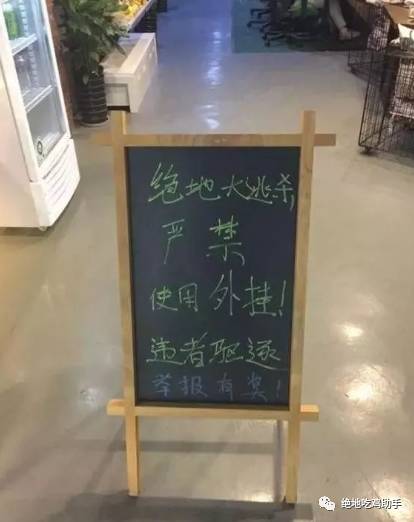 绝地大逃杀,
严禁
使用外挂!
违者驱逐
举报有奖!
绝地吃鸡助手